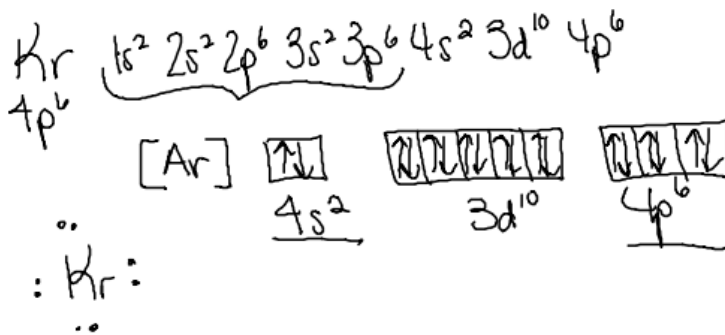 Kr 1s² 2s² 2p⁶ 3s² 3p⁶ 4s² 3d¹⁰ 4p⁶
4p⁶
[Ar] ↑↓ ↑↓ ↑↓ ↑↓ ↑↓ ↑↓ ↑↓ ↑↓ ↑↓
4s² 3d¹⁰ 4p⁶
Kr